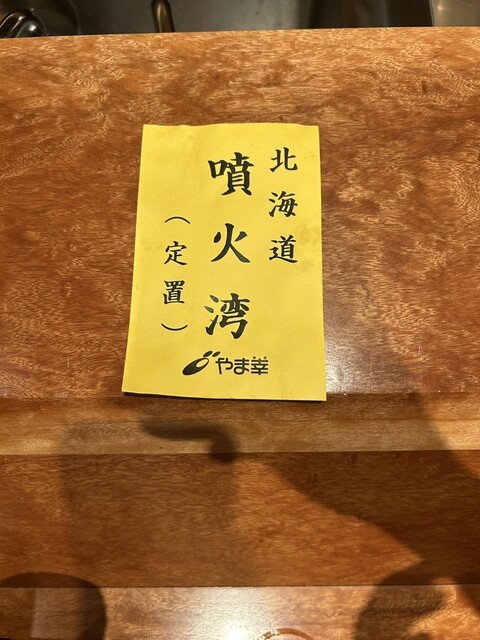 北海道
噴火湾
（定置）
やま幸